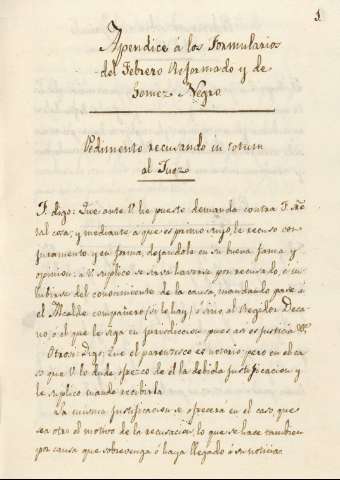 1
Apendice á los Formularios
del Febrero Reformado y de
Gomez Negro
Pedimento recusando in totum
al Juez
F. digo: Que ante V. he puesto demanda contra F. sobre
tal cosa; y mediante a que es primo suyo, le recuso con
juramento y en forma, dejandole en su buena fama y
opinion: a V. suplico se sirva haverse por recusado, é in-
hibirse del conocimiento de la causa, mandando pase á
el Alcalde compañero (si le hay) ó sino al Regidor Deca-
no, ó él que le siga en jurisdiccion pues asi es justicia &c.
Otrosi: digo: Que el parentesco es notorio; pero en el ca-
so que V. lo dude ofrezco de él la debida justificacion y
le suplico mande recibirla.
La misma justificacion se ofrecerá en el caso que
sea otro el motivo de la recusacion, lo que se hace tambien
por causa que sobrevenga ó haya llegado á su noticia